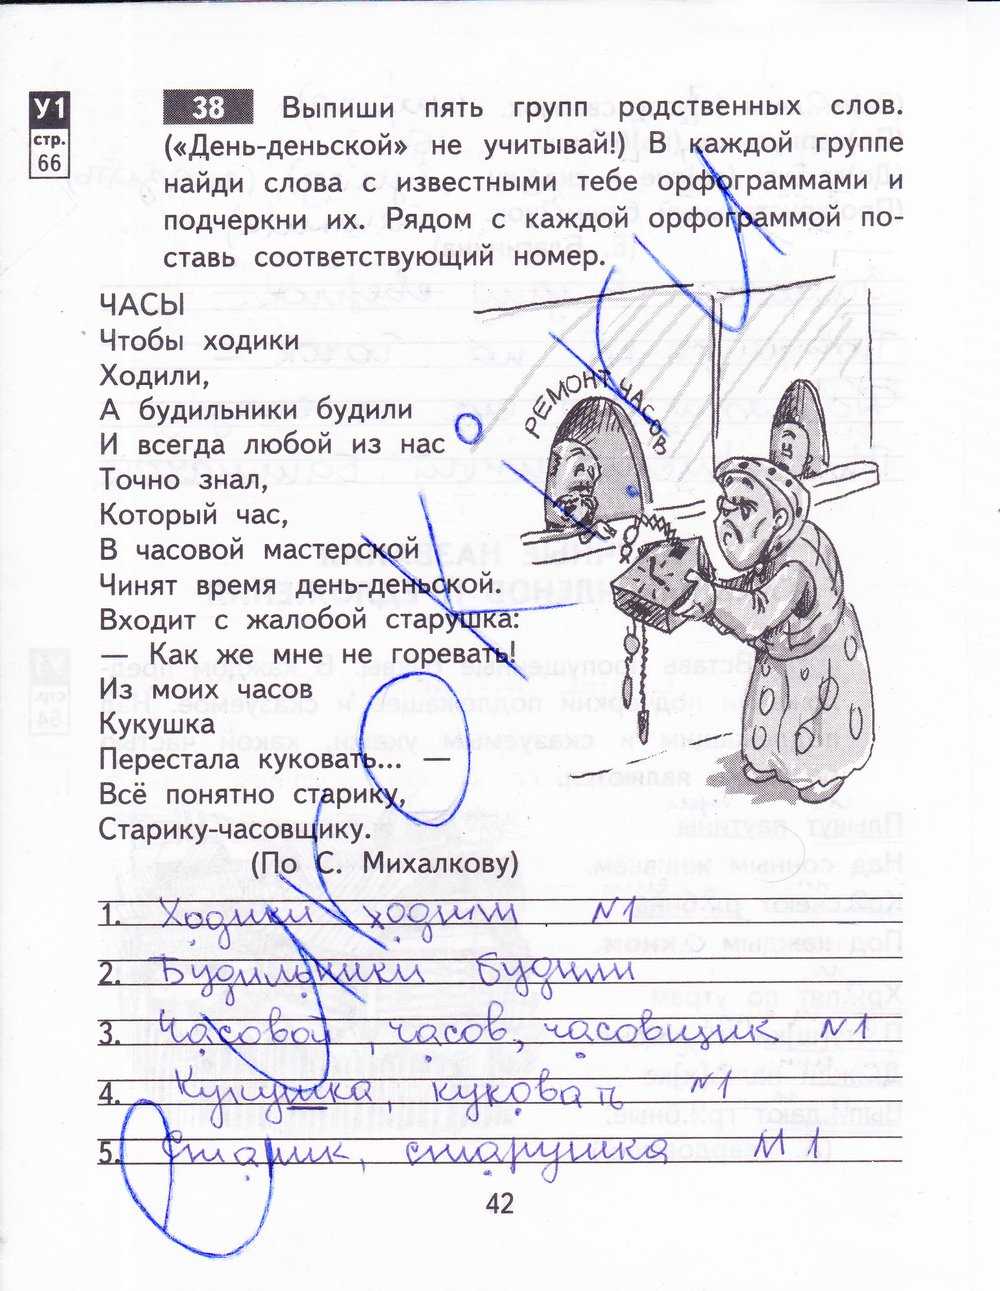 У1
стр.
66
38 Выпиши пять групп родственных слов.
(«День-деньской» не учитывай!) В каждой группе
найди слова с известными тебе орфограммами и
подчеркни их. Рядом с каждой орфограммой по-
ставь соответствующий номер.
ЧАСЫ
Чтобы ходики
Ходили,
А будильники будили
И всегда любой из нас
Точно знал,
Который час,
В часовой мастерской
Чинят время день-деньской.
Входит с жалобой старушка:
— Как же мне не горевать!
Из моих часов
Кукушка
Перестала куковать... —
Всё понятно старику,
Старику-часовщику.
(По С. Михалкову)
РЕМОНТ ЧАСОВ
1. Ходики ходили №1
2. Будильники будили
3. Часовой, часов, часовщик №1
4. Кукушка, куковать №1
5. Старик, старушка №1
42